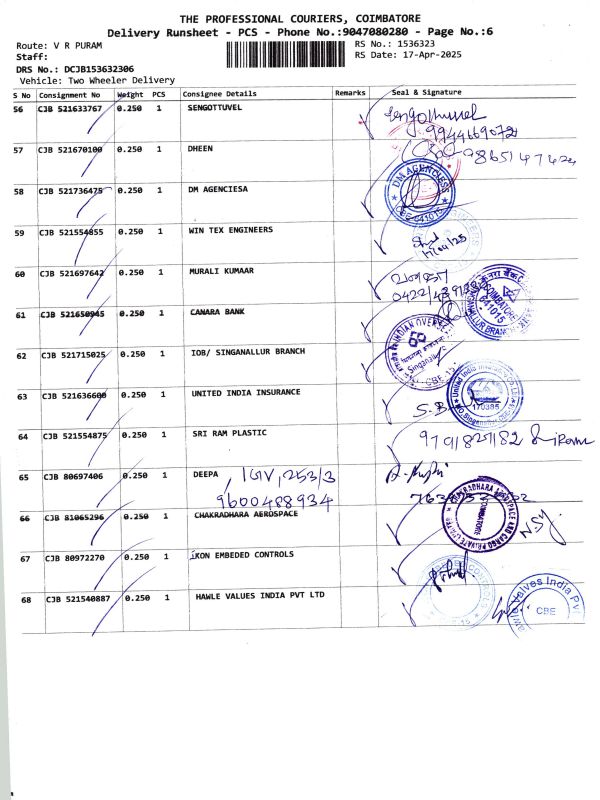 THE PROFESSIONAL COURIERS, COIMBATORE
Delivery Runsheet - PCS - Phone No.:9047080280 - Page No.:6
Route: V R PURAM
RS No.: 1536323
Staff:
RS Date: 17-Apr-2025
DRS No.: DCJB153632306
Vehicle: Two Wheeler Delivery
S No Consignment No Weight PCS Consignee Details Remarks Seal & Signature
56 CJB 521633767 0.250 1 SENGOTTUVEL
9944669072
57 CJB 521670100 0.250 1 DHEEN
58 CJB 521736475 0.250 1 DM AGENCIESA
DM AGENCIESS
59 CJB 521554855 0.250 1 WIN TEX ENGINEERS
17/04/25
60 CJB 521697642 0.250 1 MURALI KUMAAR
61 CJB 521650945 0.250 1 CANARA BANK
COIMBATORE
641015
62 CJB 521715025 0.250 1 IOB/ SINGANALLUR BRANCH
INDIAN OVERSEAS
Singanallur
CBE-15
63 CJB 521636600 0.250 1 UNITED INDIA INSURANCE
S.B
170385
64 CJB 521554875 0.250 1 SRI RAM PLASTIC
9791825182
65 CJB 80697406 0.250 1 DEEPA 1GV, 253/3
9600488934
66 CJB 81065296 0.250 1 CHAKRADHARA AEROSPACE
CHAKRADHARA AEROSPACE AND CARGO PRIVATE LIMITED
COIMBATORE
67 CJB 80972270 0.250 1 iKON EMBEDED CONTROLS
68 CJB 521540887 0.250 1 HAWLE VALUES INDIA PVT LTD
Valves India Pvt
CBE